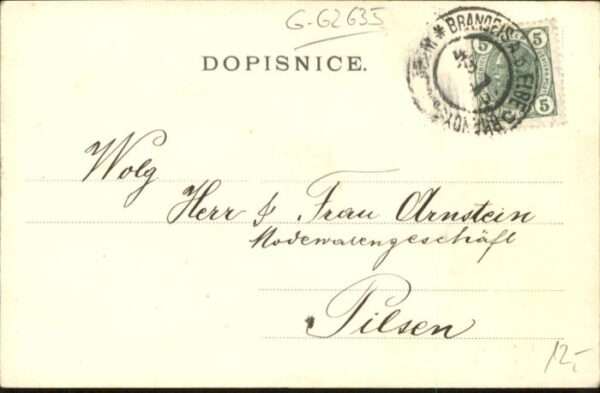 G-G2635
DOPISNICE.
BRANDEIS A. D. ELBE
5 5
5
Wolg
Herr & Frau Arnstein
Modewarengeschäft
Pilsen
12,-